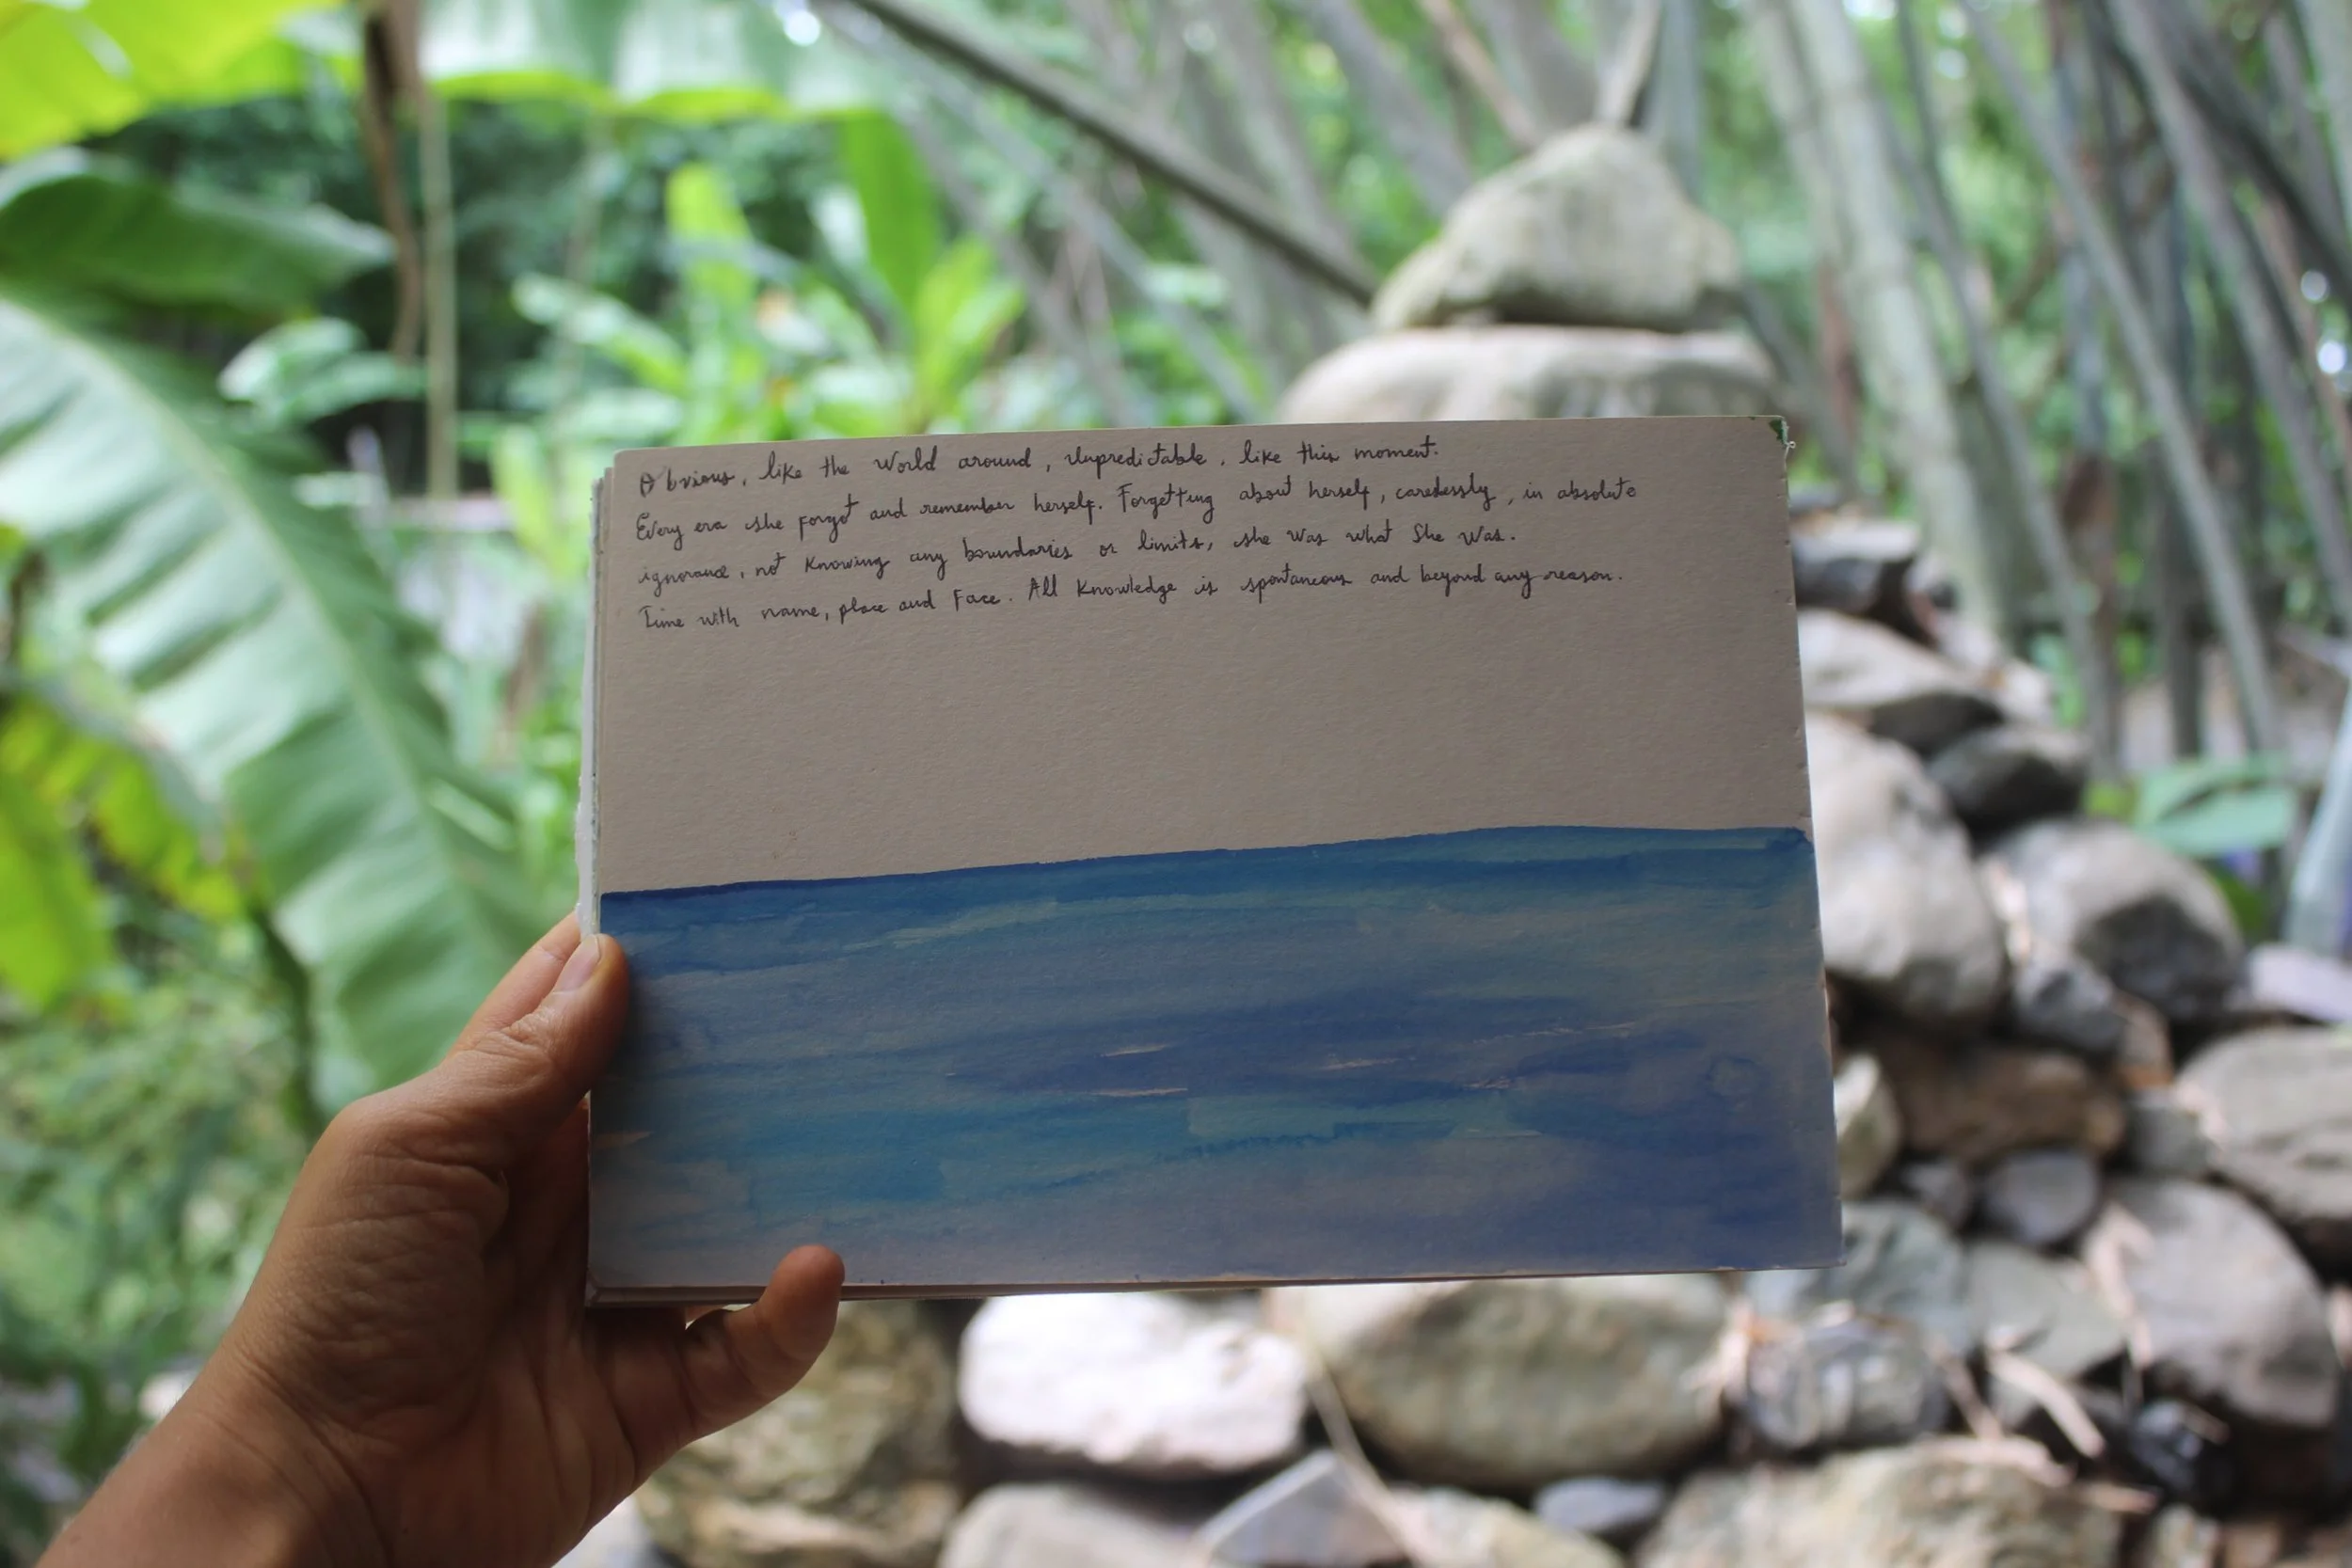 Obvious, like the world around, unpredictable, like this moment.
Every era she forgot and remember herself. Forgetting about herself, carelessly, in absolute
ignorance, not knowing any boundaries or limits, she was what She was.
Time with name, place and Face. All Knowledge is spontaneous and beyond any reason.